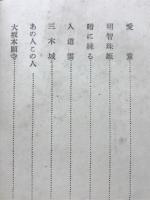 明智珠姫
に練る
入道雲
三木城
あの人この人
大坂本願寺